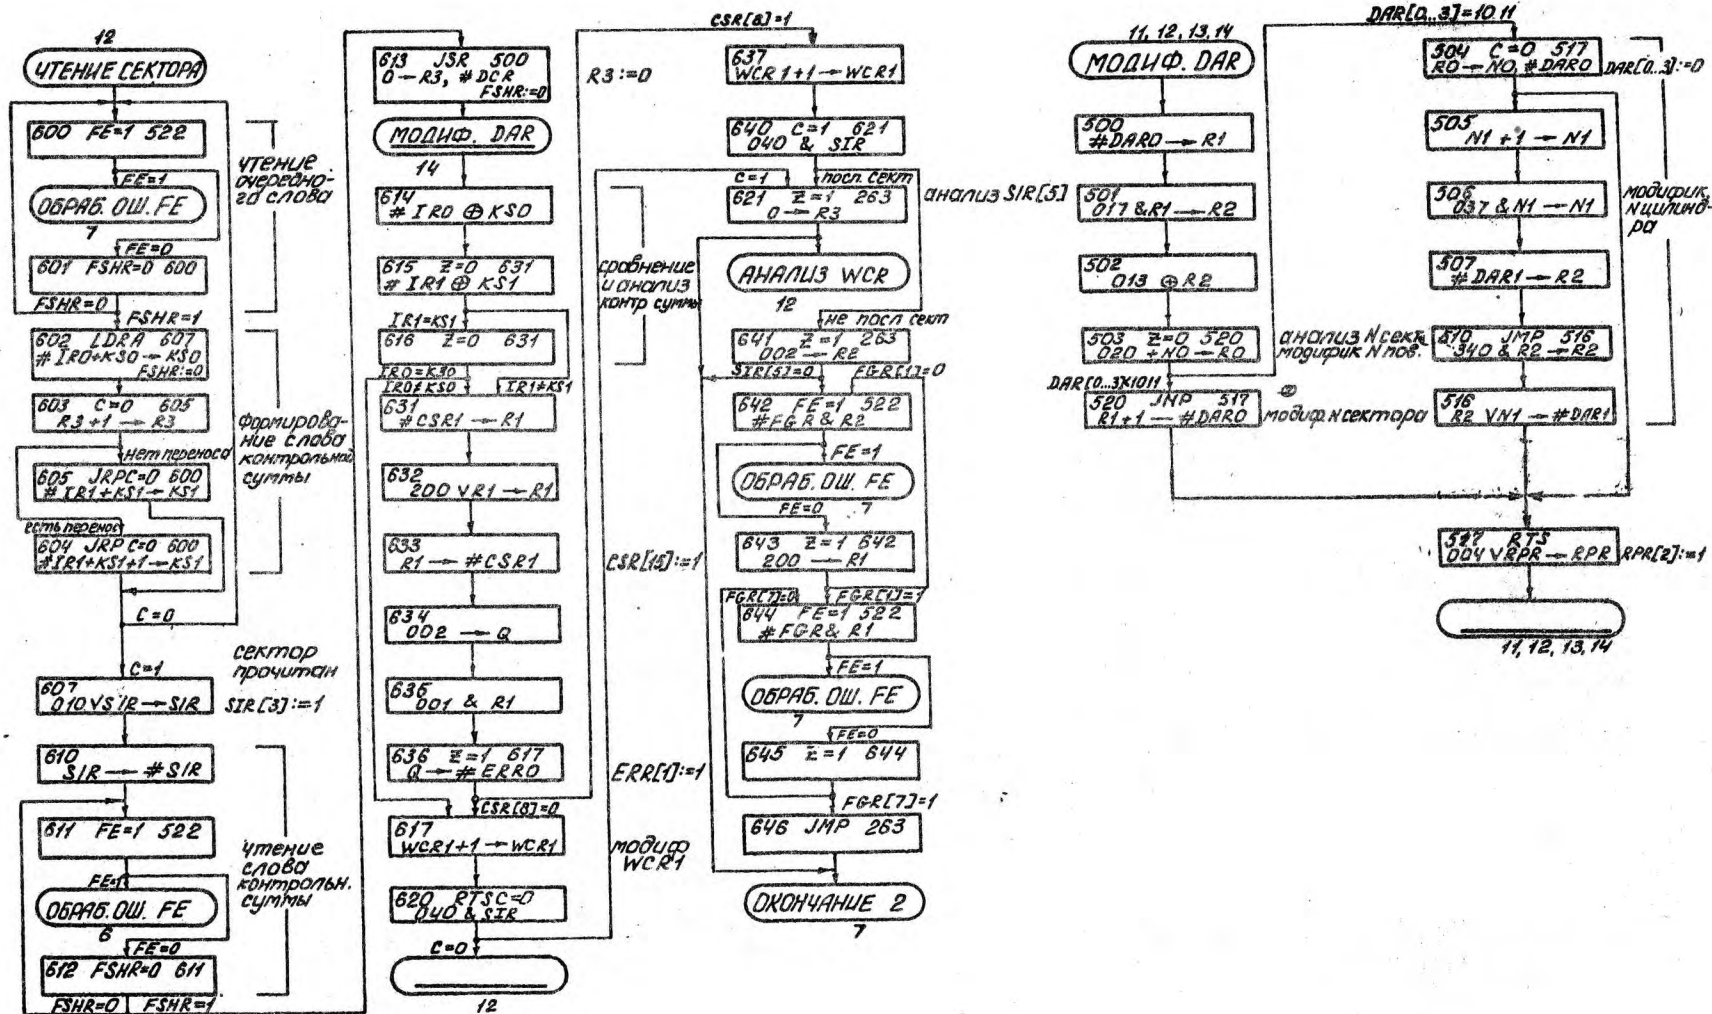 12
ЧТЕНИЕ СЕКТОРА
600 FE=1 522
FE=1
ОБРАБ. ОШ. FE
7
FE=0
601 FSHR=0 600
FSHR=0
FSHR=1
чтение
очередно-
го слова
602 LDRA 607
# IR0+KS0 → KS0
FSHR:=0
603 C=0 605
R3+1 → R3
нет переноса
605 JRPC=0 600
# IR1+KS1 → KS1
есть перенос
604 JRP C=0 600
#IR1+KS1+1 → KS1
формирова-
ние слова
контрольной
суммы
C=0
C=1
сектор
прочитан
607
010 V SIR → SIR
SIR[3]:=1
610
SIR → #SIR
611 FE=1 522
FE=1
ОБРАБ. ОШ. FE
6
FE=0
612 FSHR=0 611
FSHR=0
FSHR=1
чтение
слова
контрольн.
суммы
613 JSR 500
0 → R3, # DCR
FSHR:=0
R3:=0
МОДИФ. DAR
14
614
# IR0 ⊕ KS0
615 Z=0 631
# IR1 ⊕ KS1
IR1=KS1
616 Z=0 631
IR0=KS0
IR0≠KS0
IR1≠KS1
сравнение
и анализ
контр суммы
631
#CSR1 → R1
632
200 V R1 → R1
633
R1 → #CSR1
CSR[15]:=1
634
002 → Q
635
001 & R1
636 Z=1 617
Q → # ERR0
ERR[1]:=1
CSR[8]=0
617
WCR1+1 → WCR1
модиф
WCR1
620 RTSC=0
040 & SIR
C=0
12
CSR[8]=1
637
WCR1+1 → WCR1
640 C=1 621
040 & SIR
C=1
посл. сект
621 Z=1 263
0 → R3
анализ SIR[5]
АНАЛИЗ WCR
12
не посл сект
641 Z=1 263
002 → R2
SIR[5]=0
FGR[1]=0
642 FE=1 522
#FGR & R2
FE=1
ОБРАБ. ОШ. FE
FE=0
7
643 Z=1 642
200 → R1
FGR[7]=0
FGR[1]=1
644 FE=1 522
#FGR & R1
FE=1
ОБРАБ. ОШ. FE
7
FE=0
645 Z=1 644
FGR[7]=1
646 JMP 263
ОКОНЧАНИЕ 2
7
11, 12, 13, 14
МОДИФ. DAR
500
#DAR0 → R1
501
017 & R1 → R2
502
013 ⊕ R2
503 Z=0 520
020 + N0 → R0
анализ N сект.
модифик N пов.
520 JMP 517
R1+1 → #DAR0
модиф. N сектора
DAR[0...3]=1011
504 C=0 517
R0 → N0, #DAR0
DAR[0..3]:=0
505
N1 +1 → N1
506
037 & N1 → N1
507
#DAR1 → R2
510 JMP 516
340 & R2 → R2
516
R2 V N1 → #DAR1
модифик.
N цилинд-
ра
517 RTS
004 V RPR → RPR
RPR[2]:=1
11, 12, 13, 14